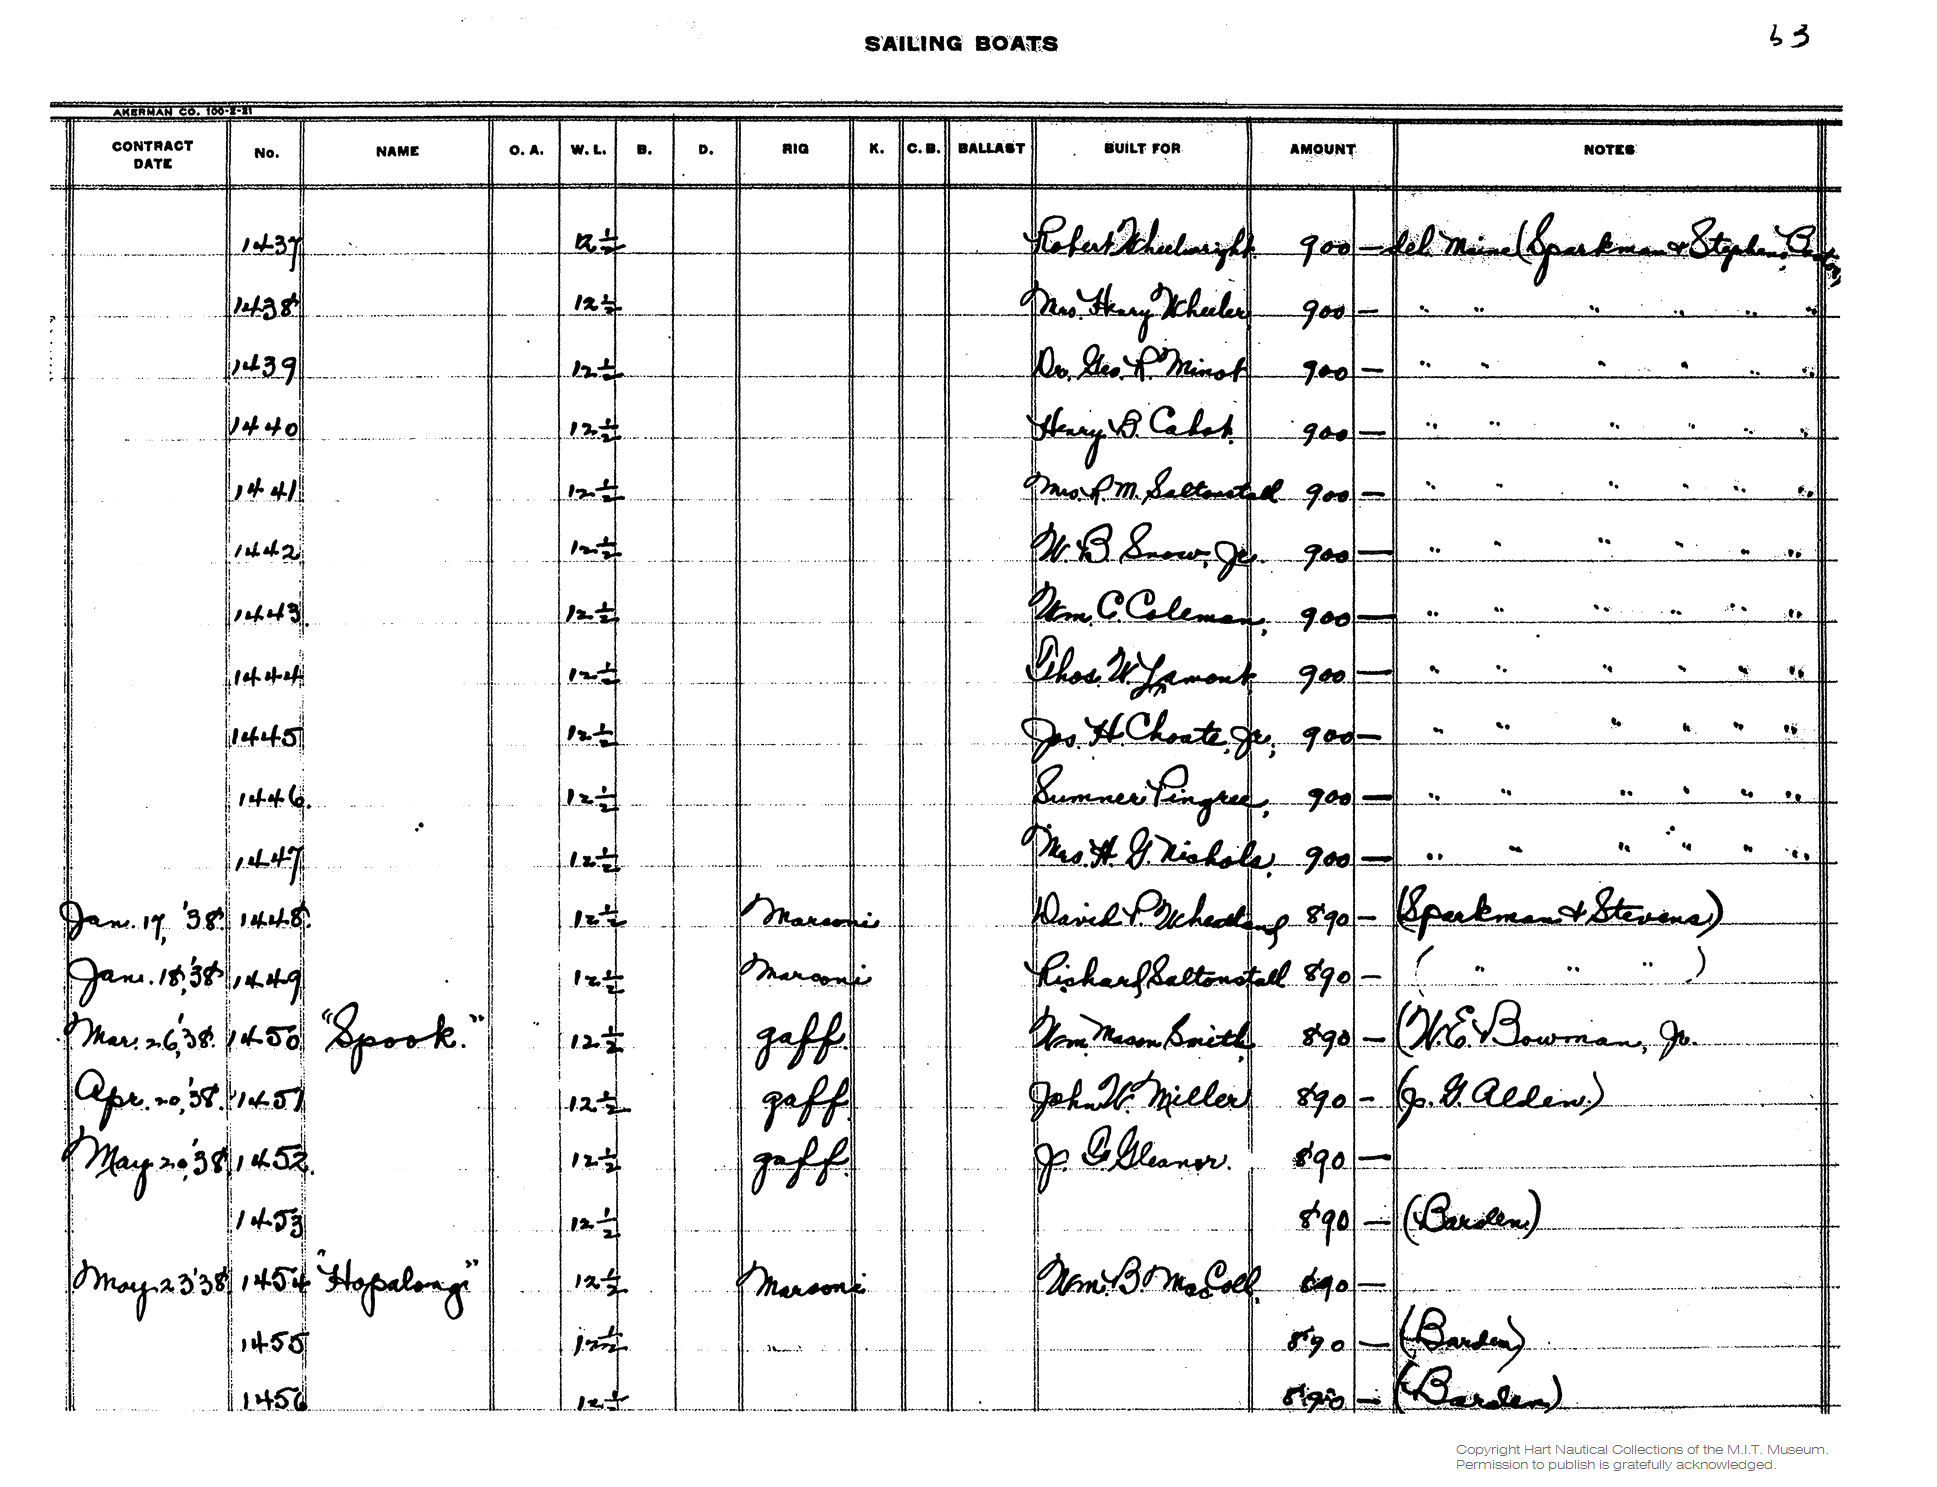 SAILING BOATS
53
AKERMAN CO. 100-2-21
CONTRACT DATE No. NAME O. A. W. L. B. D. RIG K. C. B. BALLAST BUILT FOR AMOUNT NOTES
1437 12½ Robert Wheelwright 900 — del. Maine (Sparkman & Stephens, Boston)
1438 12½ Mrs. Henry Wheeler 900 — " " " " " "
1439 12½ Dr. Geo. R. Minot 900 — " " " " " "
1440 12½ Henry B. Cabot. 900 — " " " " " "
1441 12½ Mrs. R. M. Saltonstall 900 — " " " " " "
1442 12½ W. B. Snow, Jr. 900 — " " " " " "
1443. 12½ Wm. C. Coleman, 900 — " " " " " "
1444 12½ Thos. W. Lamont 900 — " " " " " "
1445 12½ Jos. H. Choate, Jr., 900 — " " " " " "
1446. 12½ Sumner Pingree, 900 — " " " " " "
1447 12½ Mrs. H. G. Nichols, 900 — " " " " " "
Jan. 17, '38. 1448. 12½ Marconi David P. Wheatland 890 — (Sparkman & Stevens)
Jan. 18, '38 1449 12½ Marconi Richard Saltonstall 890 — ( " " " )
Mar. 26, '38. 1450 "Spook." 12½ gaff. Wm. Mason Smith, 890 — (W. E. Bowman, Jr.
Apr. 20, '38. 1451 12½ gaff John W. Miller 890 - (J. G. Alden.)
May 20, '38. 1452. 12½ gaff. J. G. Gleanor. 890 —
1453 12½ 890 — (Barden.)
May 23 '38 1454 "Hopalong" 12½ Marconi Wm. B. MacColl, 890 —
1455 12½ 890 — (Barden)
1456 12½ 890 — (Barden)
Copyright Hart Nautical Collections of the M.I.T. Museum.
Permission to publish is gratefully acknowledged.